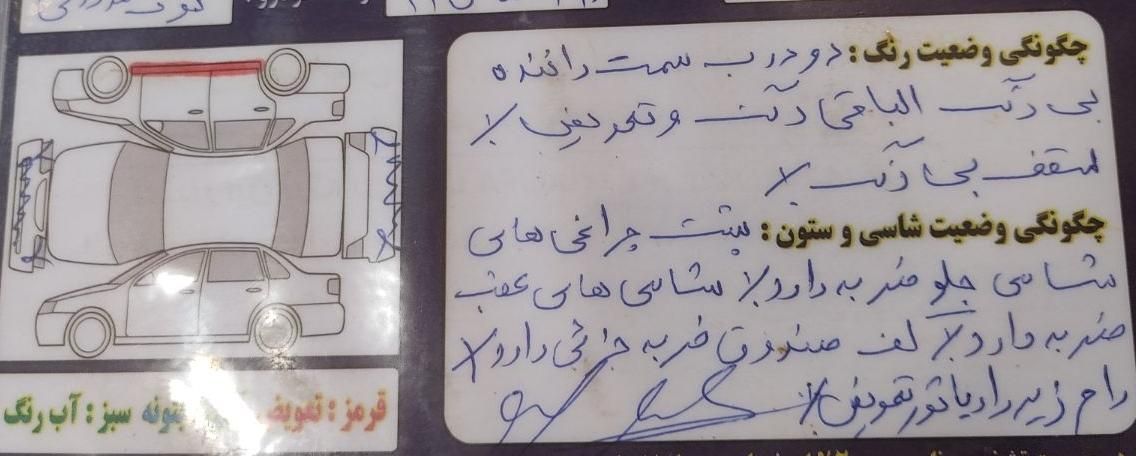 چگونگی وضعیت رنگ : دو درب سمت راننده
بی رنگ الباقی رنگ و تعویض
سقف بی رنگ
چگونگی وضعیت شاسی و ستون : پشت چراغی های
شاسی جلو ضربه دارد شاسی های عقب
ضربه دارد کف صندوق ضربه جزئی دارد
رام زیر رادیاتور تعویض
قرمز : تعویض بتونه سبز : آب رنگ